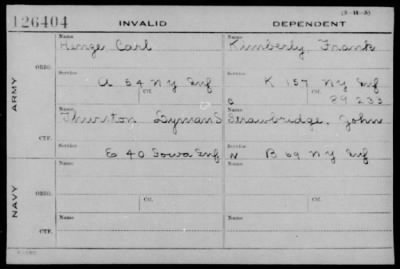 (3-M-3)
126404 INVALID DEPENDENT
Name Name
Henze Carl Kimberly, Frank
ORIG.
Service Service
A 54 NY Inf K 157 NY Inf
Ctf. Ctf.
C 89 233
ARMY
Name Name
Thurston Lyman S Strawbridge, John
CTF.
Service Service
E 40 Iowa Inf N B 69 NY Inf
Name Name
ORIG.
Ctf. Ctf.
NAVY
Name Name
CTF.